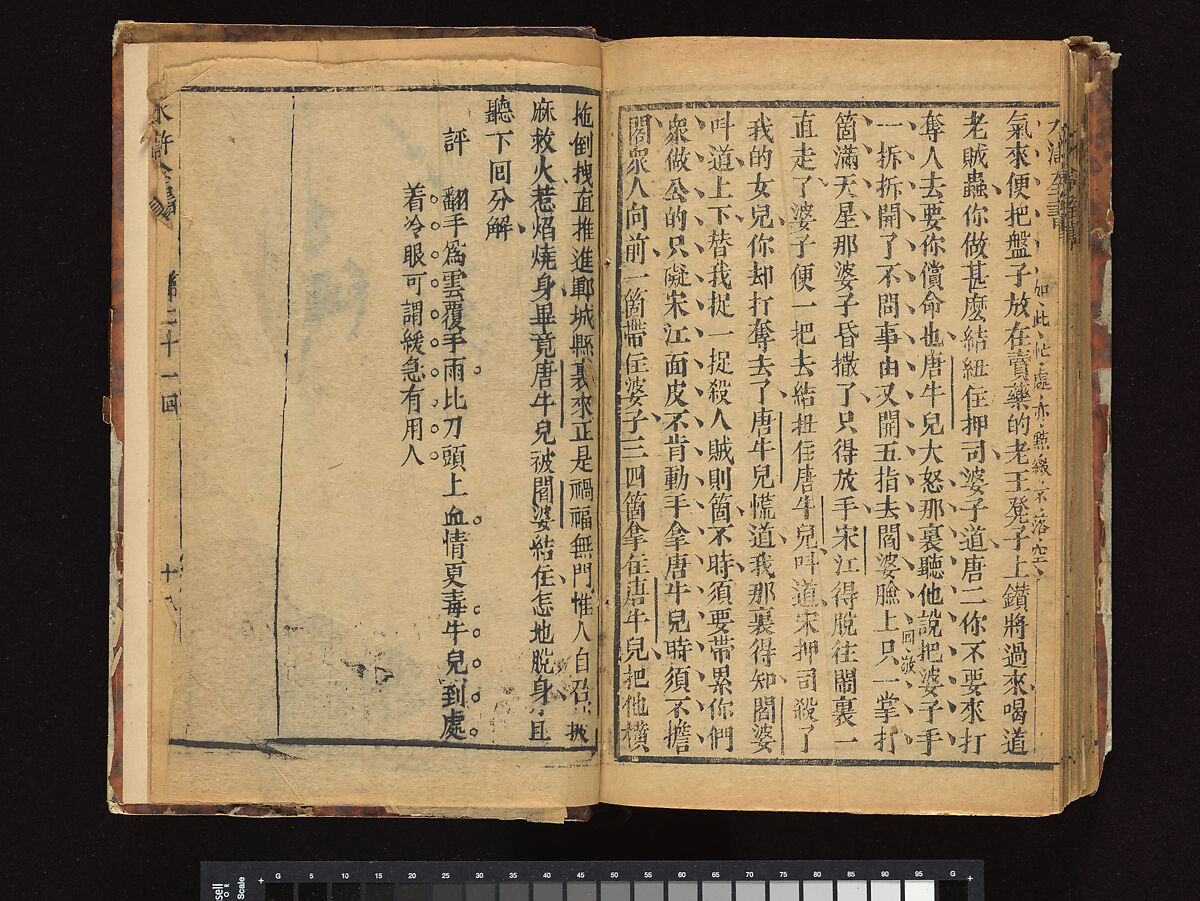 如此忙處亦點綴不落空
氣來便把盤子放在賣藥的老王凳子上鑽將過來喝道
老賊蟲你做甚麼結紐住押司婆子道唐二你不要來打
奪人去要你償命也唐牛兒大怒那裏聽他說把婆子手
一拆拆開了不問事由叉開五指去閻婆臉上只一掌打
箇滿天星那婆子昏撒了只得放手宋江得脫往鬧裏一
直走了婆子便一把去結扭住唐牛兒呌道宋押司殺了
我的女兒你却打奪去了唐牛兒慌道我那裏得知閻婆
呌道上下替我捉一捉殺人賊則箇不時須要帶累你們
衆做公的只礙宋江面皮不肯動手拿唐牛兒時須不擔
閣衆人向前一箇帶住婆子三四箇拿住唐牛兒把他橫
拖倒拽直推進鄆城縣裏來正是禍福無門惟人自召披
麻救火惹焰燒身畢竟唐牛兒被閻婆結住怎地脫身且
聽下回分解
評
翻手爲雲覆手雨比刀頭上血情更毒牛兒到處
着冷眼可謂緩急有用人
第二十一回